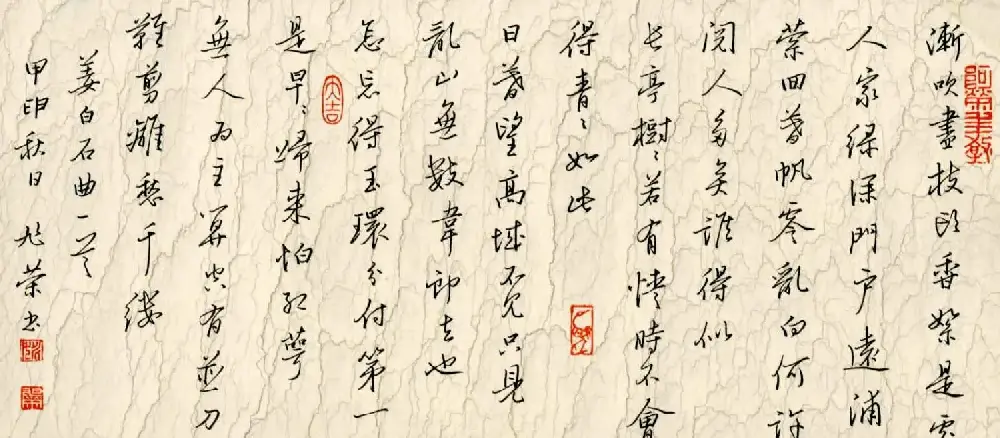 漸吹盡枝頭香絮是處
人家綠深門户遠浦
縈回暮帆零亂向何許
閲人多矣誰得似
長亭樹〻若有情時不會
得青〻如此
日暮望高城不見只見
亂山無數韋郎去也
怎忘得玉環分付第一
是早〻歸來怕紅萼
大吉
無人為主算空有並刀
難剪離愁千縷
姜白石曲一首
甲申秋日 榮書